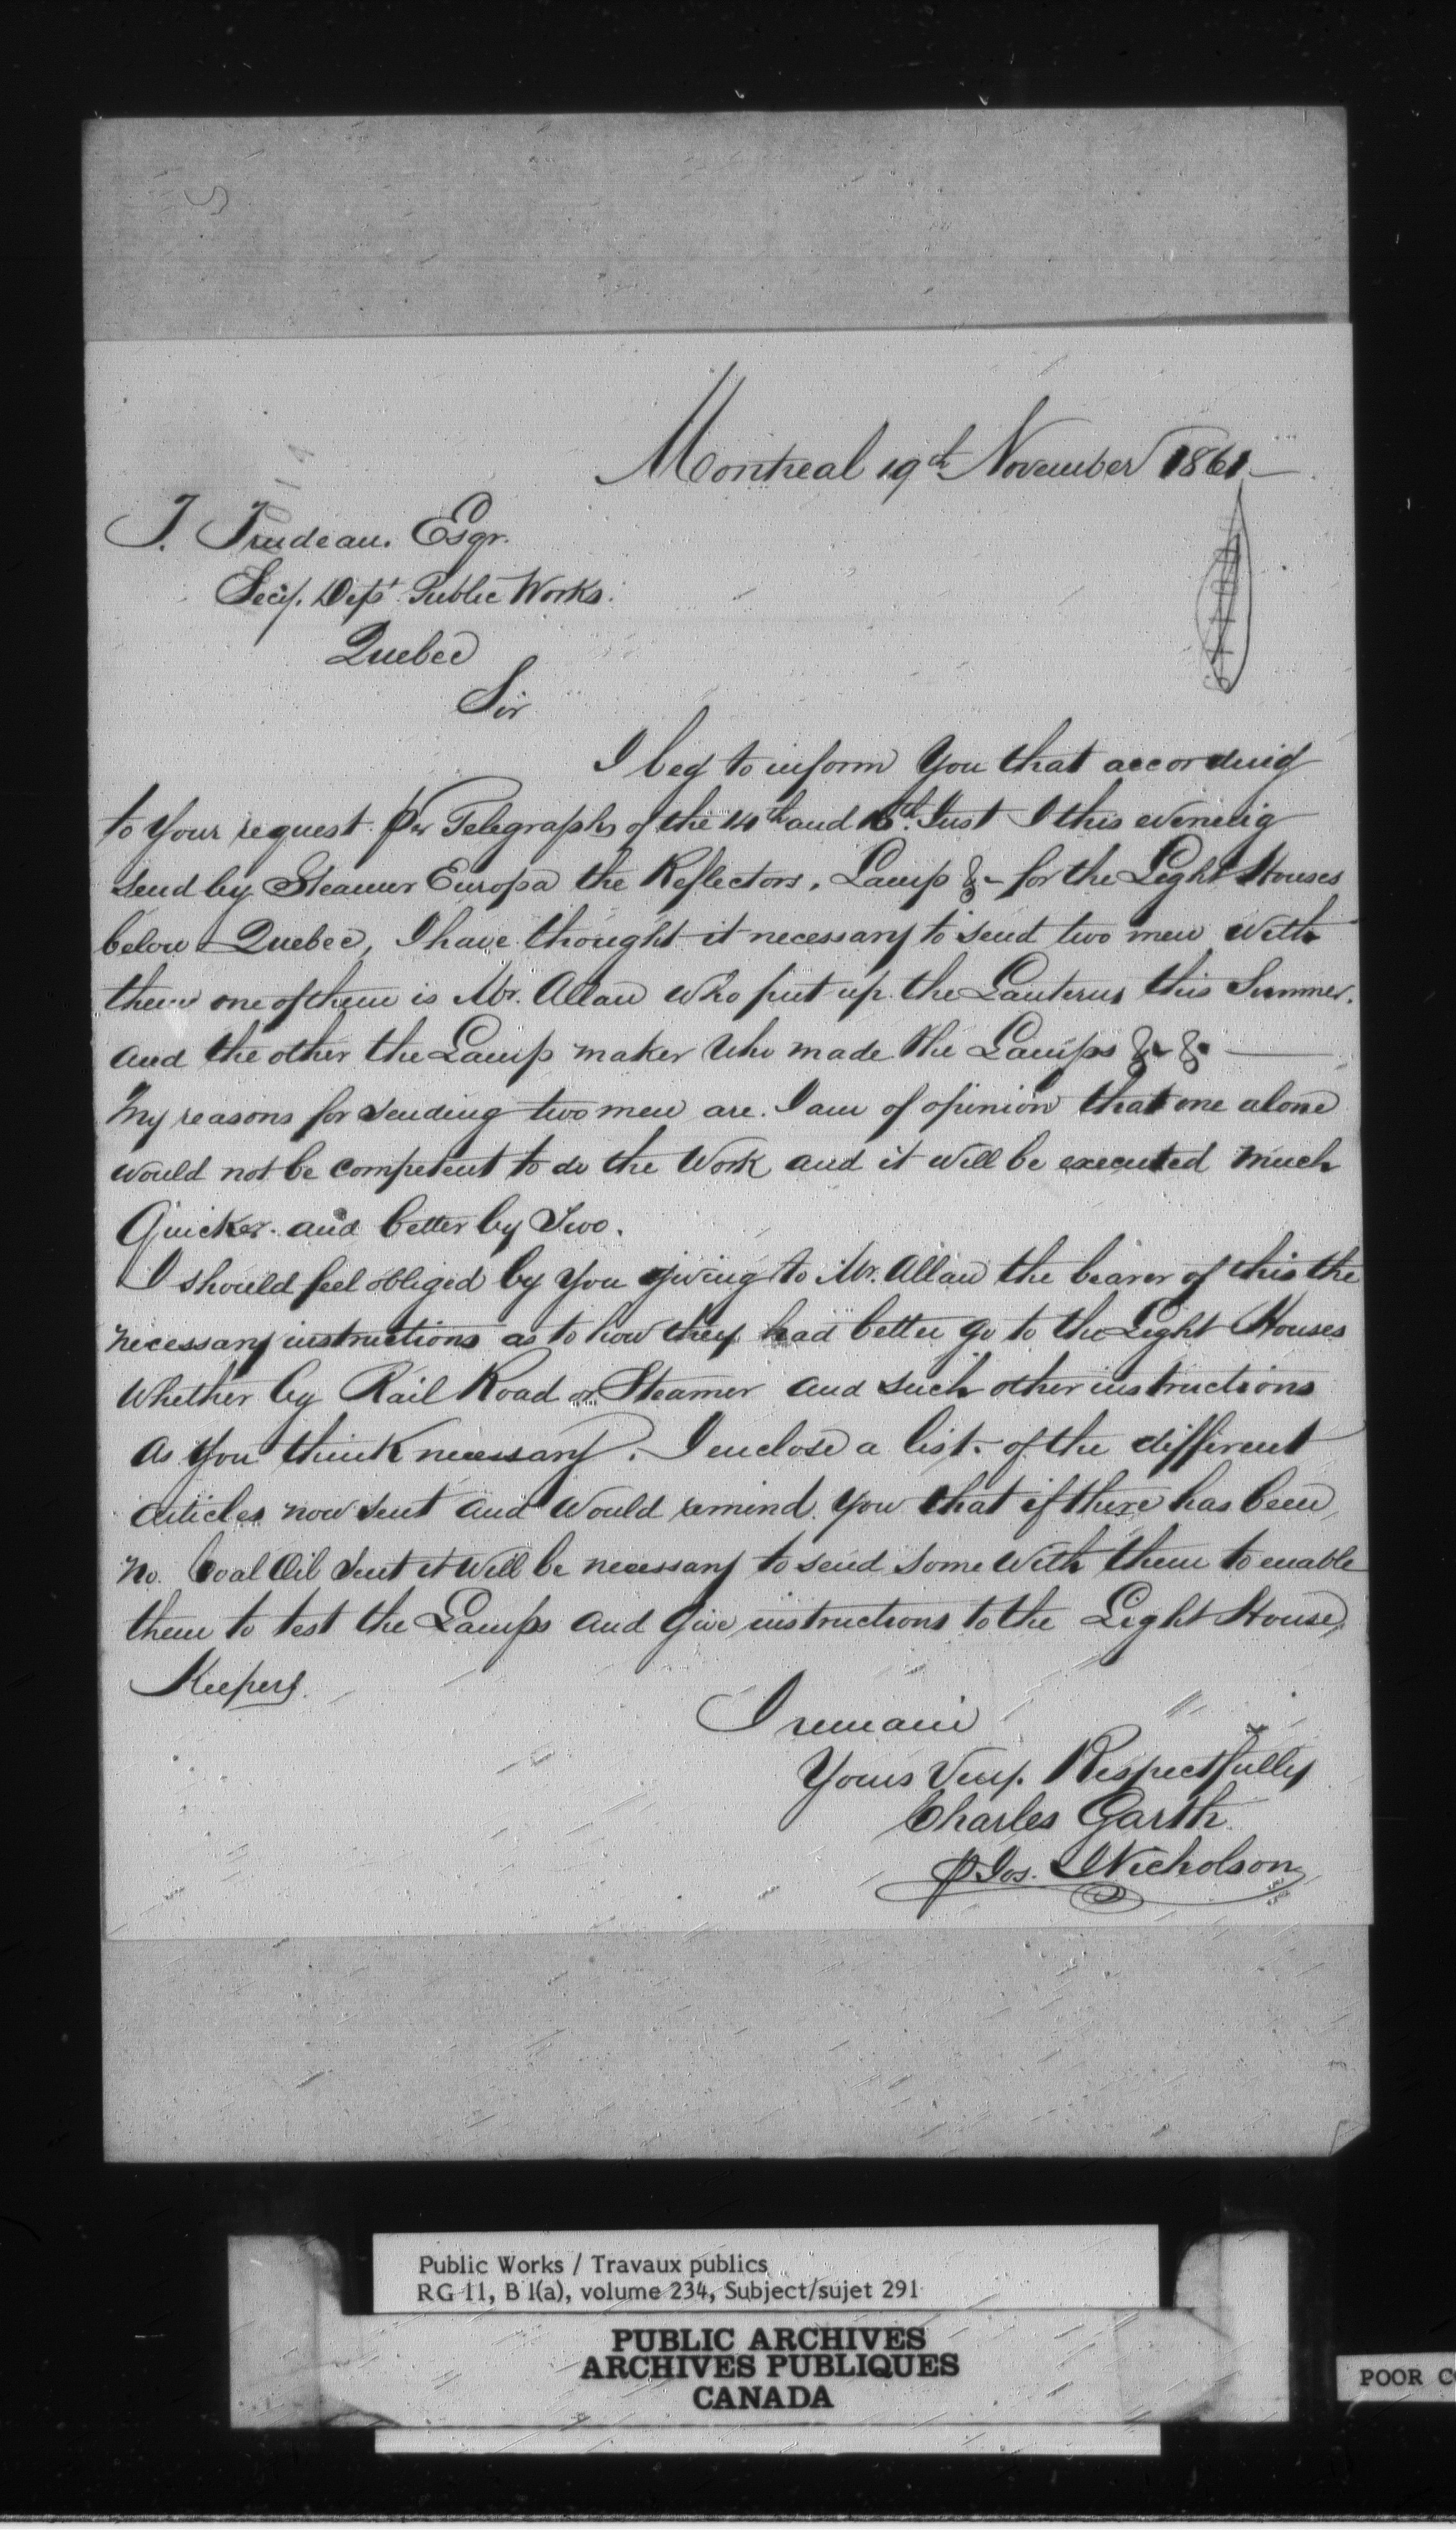 Montreal 19th November 1861
T. Trudeau. Esqr.
Secy. Dept. Public Works.
Quebec
Sir
I beg to inform You that according
to Your request. per Telegraphs of the 14th and 16th. Inst I this evening
send by Steamer Europa the Reflectors, Lamps &c for the Light Houses
below Quebec, I have thought it necessary to send two men With
them one of them is Mr. Allan who put up the Lanterns this Summer.
and the other the Lamp maker Who made the Lamps &c &c
My reasons for sending two men are. I am of opinion that one alone
would not be competent to do the Work and it will be executed much
Quicker. and better by Two.
I should feel obliged by You giving to Mr. Allan the bearer of this the
necessary instructions as to how they had better go to the Light Houses
Whether by Rail Road or Steamer and such other instructions
as You think necessary. I enclose a list. of the different
articles now sent and Would remind You that if there has been
no. Coal Oil Sent it Will be necessary to send some With them to enable
them to test the Lamps and Give instructions to the Light House
Keepers.
I remain
Yours Very. Respectfully
Charles Garth.
p Jos. Nicholson
Public Works / Travaux publics
RG 11, B 1(a), volume 234, Subject/sujet 291
PUBLIC ARCHIVES
ARCHIVES PUBLIQUES
CANADA
POOR